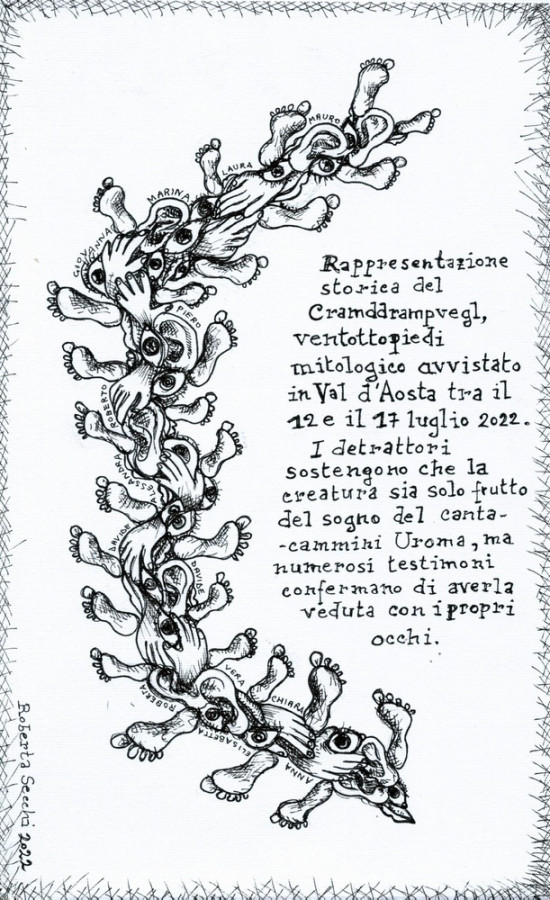 MAURO
LAURA
MARINA
GIOVANNA
PIERO
ROBERTO
ALESSANDRA
DAVIDE
EDVIGE
VERA
ROBERTA
CHIARA
ELISABETTA
ANNA
Rappresentazione
storica del
Cramddrampvegl,
ventottopiedi
mitologico avvistato
in Val d'Aosta tra il
12 e il 17 luglio 2022.
I detrattori
sostengono che la
creatura sia solo frutto
del sogno del canta-
-cammini Uroma, ma
numerosi testimoni
confermano di averla
veduta con i propri
occhi.
Roberta Secchi 2022